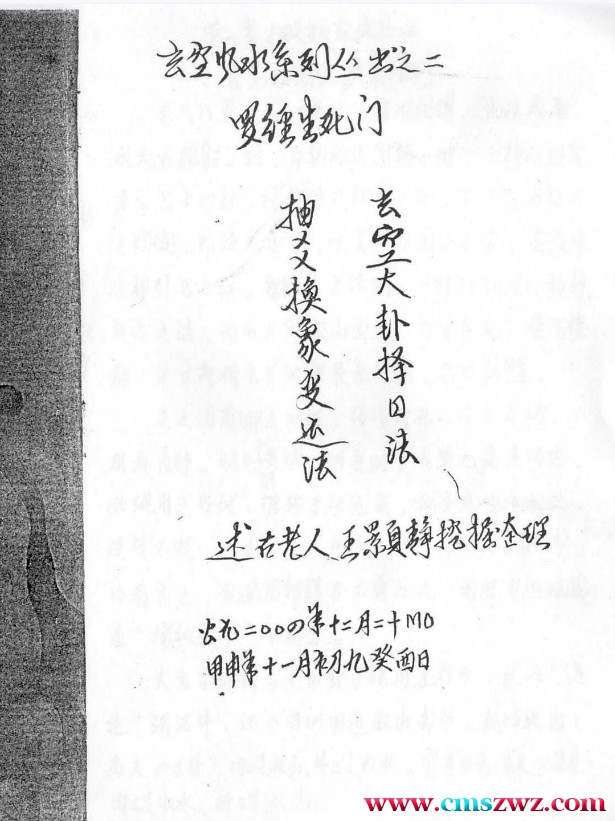 玄空风水系列丛书之二
罗经生死门
玄空大卦择日法
抽爻换象变运法
述古老人王静挖掘整理
公元二00四年十二月二十
甲申年十一月初九癸酉日
www.cmszwz.com